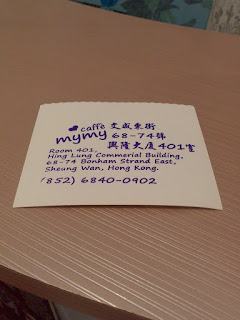 caffe 文咸東街
mymy 68-74號
興隆大廈401室
Room 401,
Hing Lung Commerial Building,
68-74 Bonham Strand East,
Sheung Wan, Hong Kong.
(852) 6840-0902